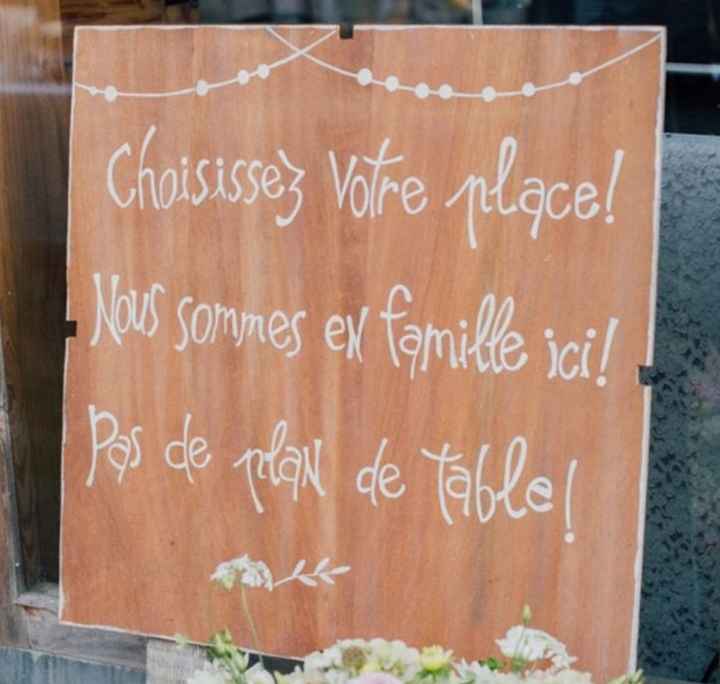 Choisissez votre place!
Nous sommes en famille ici!
Pas de plan de table!